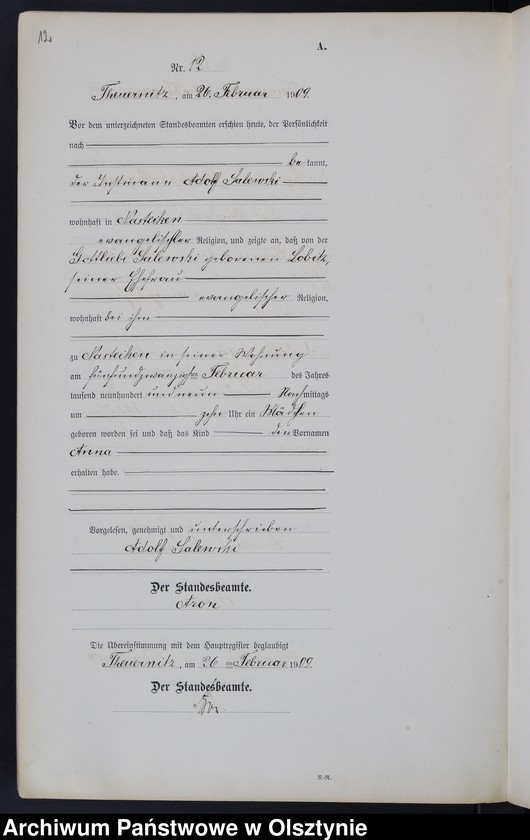 12.
A.
Nr. 12
Theuernitz, am 26. Februar 1909.
Vor dem unterzeichneten Standesbeamten erschien heute, der Persönlichkeit
nach
be kannt,
der Instmann Adolf Salewski
wohnhaft in Nasteiken
evangelischer Religion, und zeigte an, daß von der
Gottliebe Salewski geborenen Lobitz,
seiner Ehefrau
evangelischer Religion,
wohnhaft bei ihm
zu Nasteiken in seiner Wohnung
am fünfundzwanzigsten Februar des Jahres
tausend neunhundert und neun Nachmittags
um zehn Uhr ein Mädchen
geboren worden sei und daß das Kind den Vornamen
Anna
erhalten habe.
Vorgelesen, genehmigt und unterschrieben
Adolf Salewski
Der Standesbeamte.
Aron
Die Übereinstimmung mit dem Hauptregister beglaubigt
Theuernitz, am 26 ten Februar 1909.
Der Standesbeamte.
R.-R.
Archiwum Państwowe w Olsztynie